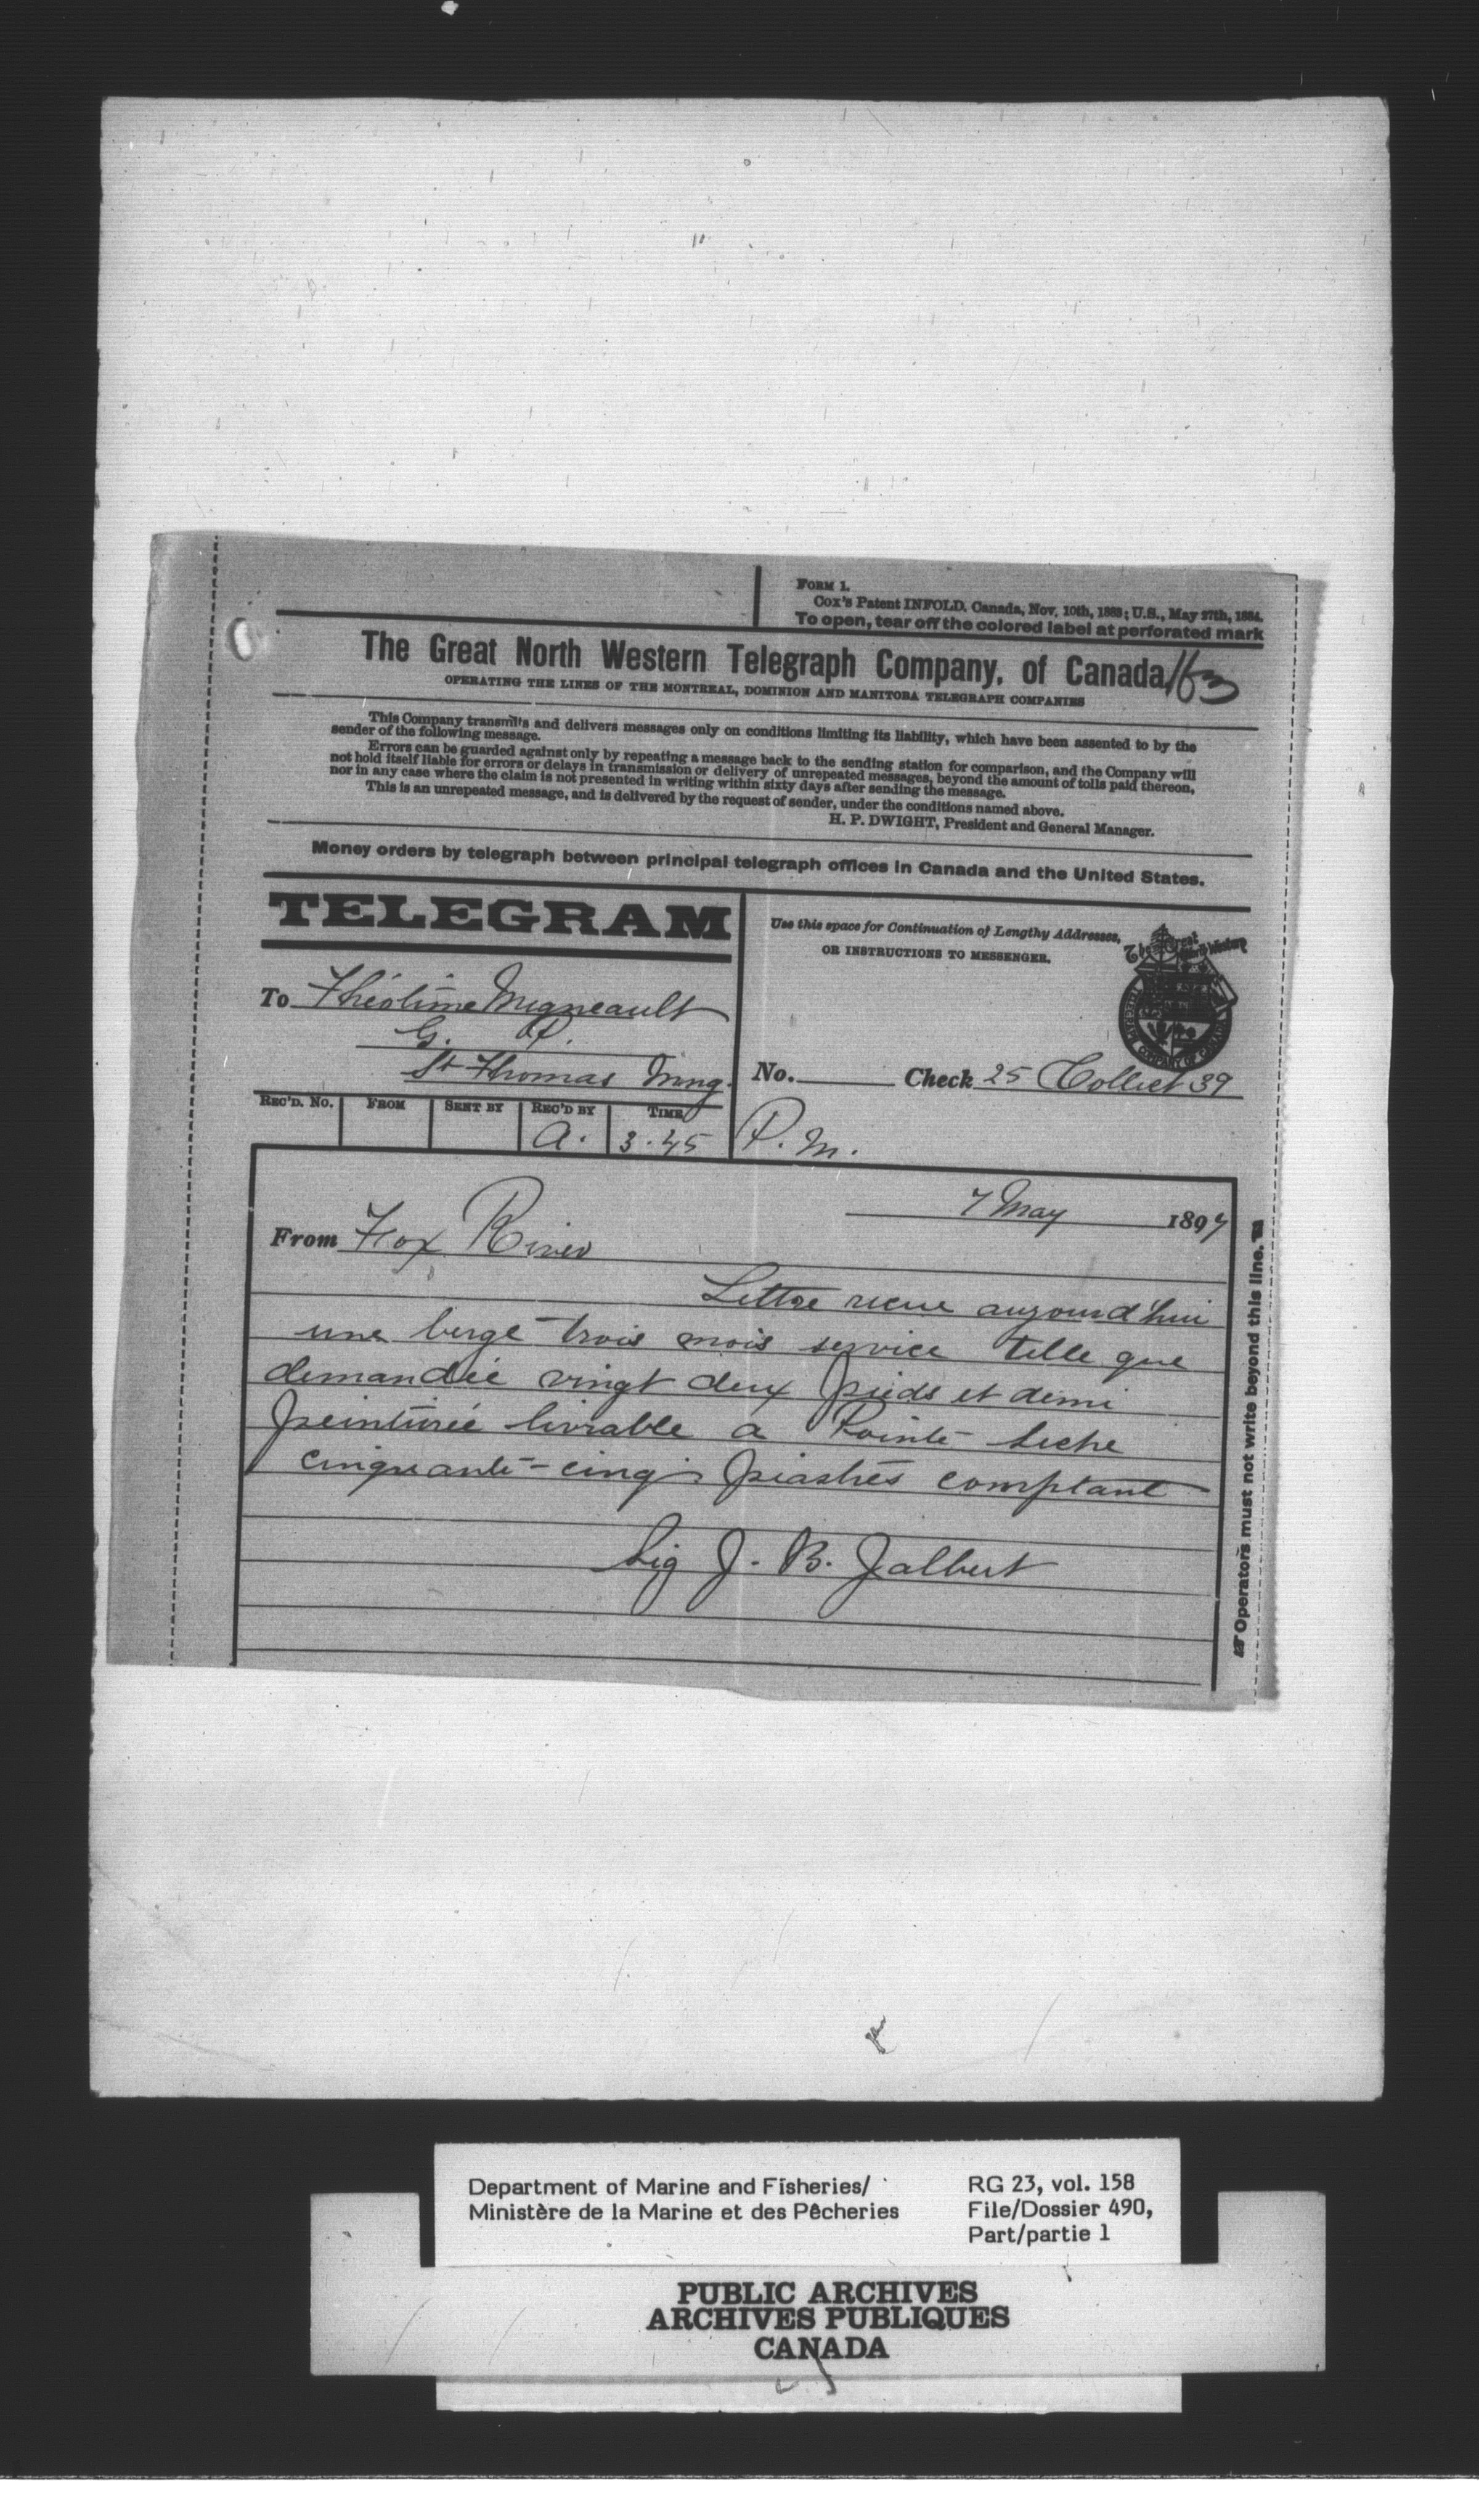 FORM 1.
Cox's Patent INFOLD. Canada, Nov. 10th, 1883; U.S., May 27th, 1884.
To open, tear off the colored label at perforated mark
The Great North Western Telegraph Company, of Canada 163
OPERATING THE LINES OF THE MONTREAL, DOMINION AND MANITOBA TELEGRAPH COMPANIES
This Company transmits and delivers messages only on conditions limiting its liability, which have been assented to by the
sender of the following message.
Errors can be guarded against only by repeating a message back to the sending station for comparison, and the Company will
not hold itself liable for errors or delays in transmission or delivery of unrepeated messages, beyond the amount of tolls paid thereon,
nor in any case where the claim is not presented in writing within sixty days after sending the message.
This is an unrepeated message, and is delivered by the request of sender, under the conditions named above.
H. P. DWIGHT, President and General Manager.
Money orders by telegraph between principal telegraph offices in Canada and the United States.
TELEGRAM
Use this space for Continuation of Lengthy Addresses,
OR INSTRUCTIONS TO MESSENGER.
The Great North Western
TELEGRAPH COMPANY OF CANADA
To Théotime Migneault
G. P.
St Thomas Mmg.
No. Check 25 Collect 39
REC'D. NO. FROM SENT BY REC'D BY TIME
a. 3.45 P.M.
7 May 1897
From Fox River
Lettre recue aujourd'hui
une berge trois mois service telle que
demandée vingt deux pieds et demi
peinturée livrable a Pointe Seche
cinquante-cinq piastres comptant
Sig J. B. Jalbert
Operators must not write beyond this line.
Department of Marine and Fisheries/
Ministère de la Marine et des Pêcheries
RG 23, vol. 158
File/Dossier 490,
Part/partie 1
PUBLIC ARCHIVES
ARCHIVES PUBLIQUES
CANADA